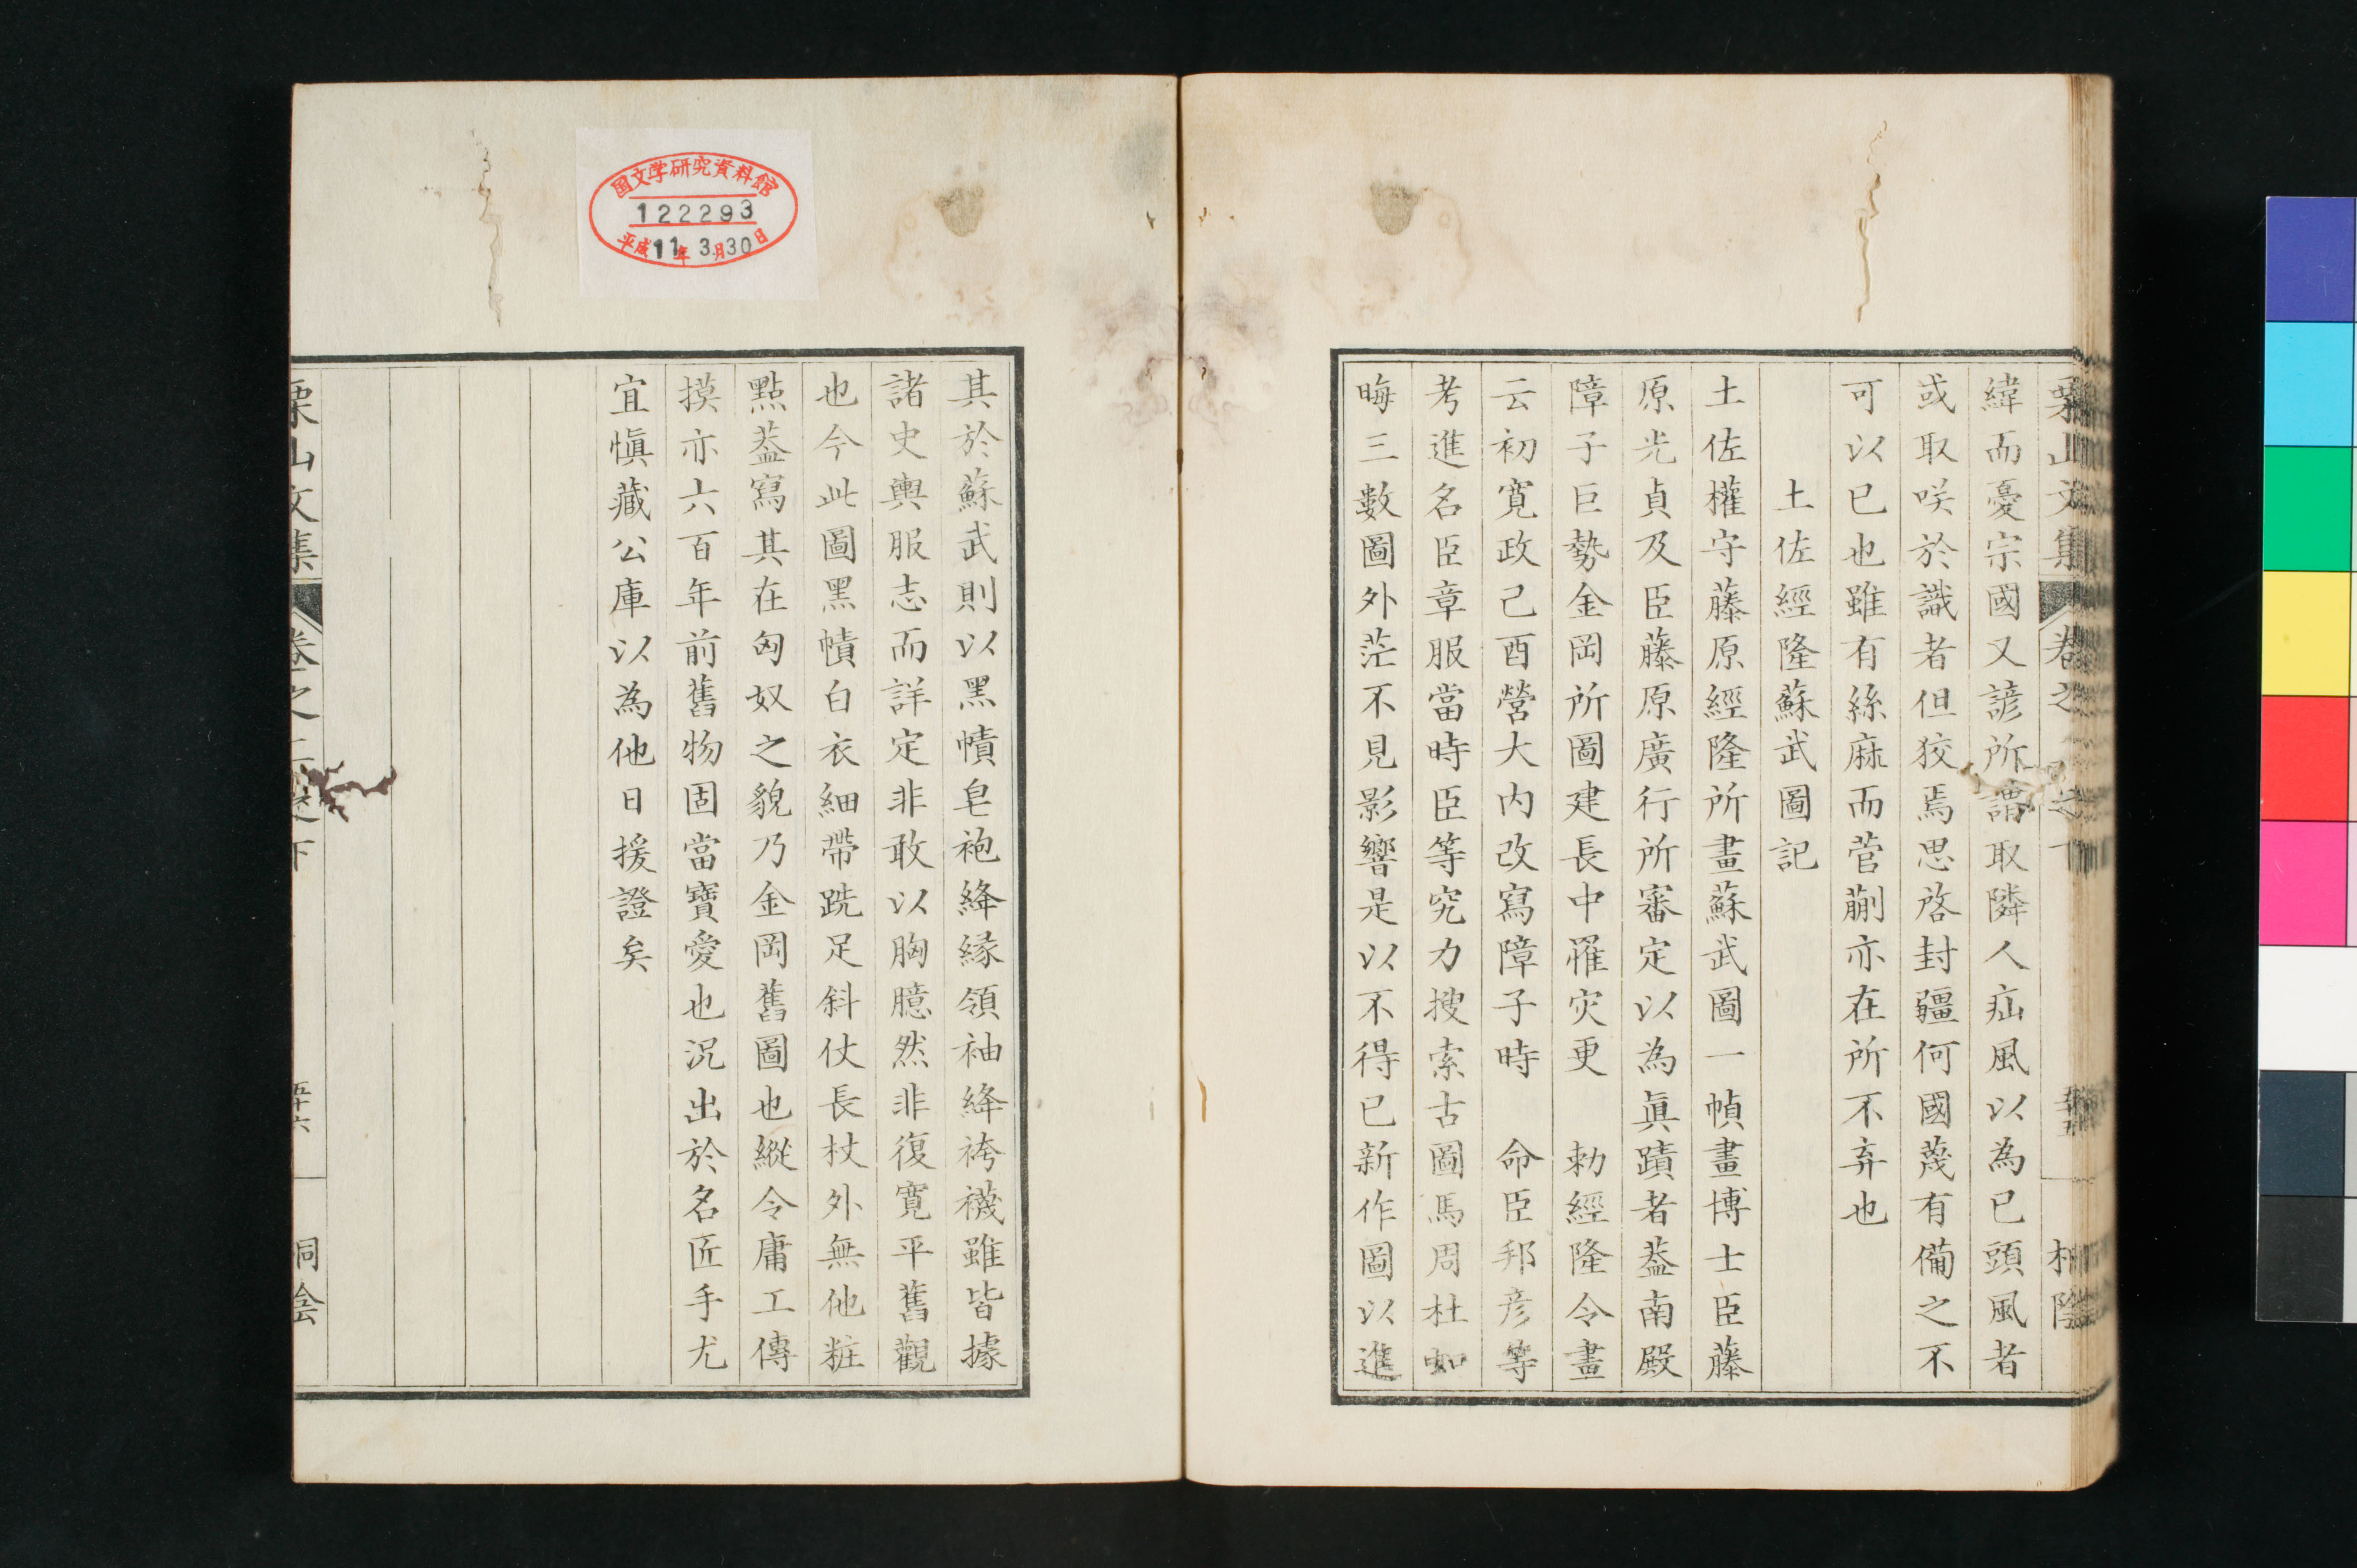 栗山文集
卷之
緯而憂宗國又諺所謂取隣人疝風以為已頭風者
或取咲於識者但狡焉思啓封疆何國蔑有備之不
可以已也雖有絲麻而菅蒯亦在所不弃也
土佐經隆蘇武圖記
土佐權守藤原經隆所畫蘇武圖一幀畫博士臣藤
原光貞及臣藤原廣行所審定以為眞蹟者葢南殿
障子巨勢金岡所圖建長中罹灾更 勅經隆令畫
云初寛政己酉營大内改寫障子時 命臣邦彦等
考進名臣章服當時臣等究力搜索古圖馬周杜如
晦三數圖外茫不見影響是以不得已新作圖以進
其於蘇武則以黑幘皂袍絳縁領袖絳袴襪雖皆據
諸史輿服志而詳定非敢以胸臆然非復寛平舊觀
也今此圖黑幘白衣細帶跣足斜仗長杖外無他粧
點葢寫其在匈奴之貌乃金岡舊圖也縱令庸工傳
摸亦六百年前舊物固當寶愛也況出於名匠手尤
宜愼藏公庫以為他日援證矣
栗山文集
卷之
下
五十六
国文学研究資料館
122293
平成11年3月30日